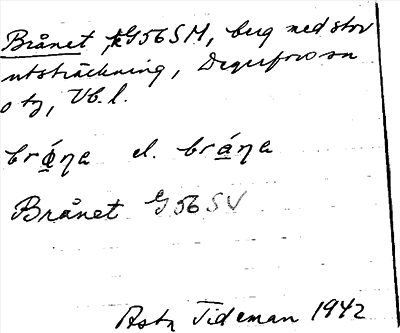 Brånet, G56SM, berg med stor
utsträckning, Degerfors sn
o tg, Vb. l.
brǻŋa el. bráŋa
Brånet G56SV
Asta Tideman 1942